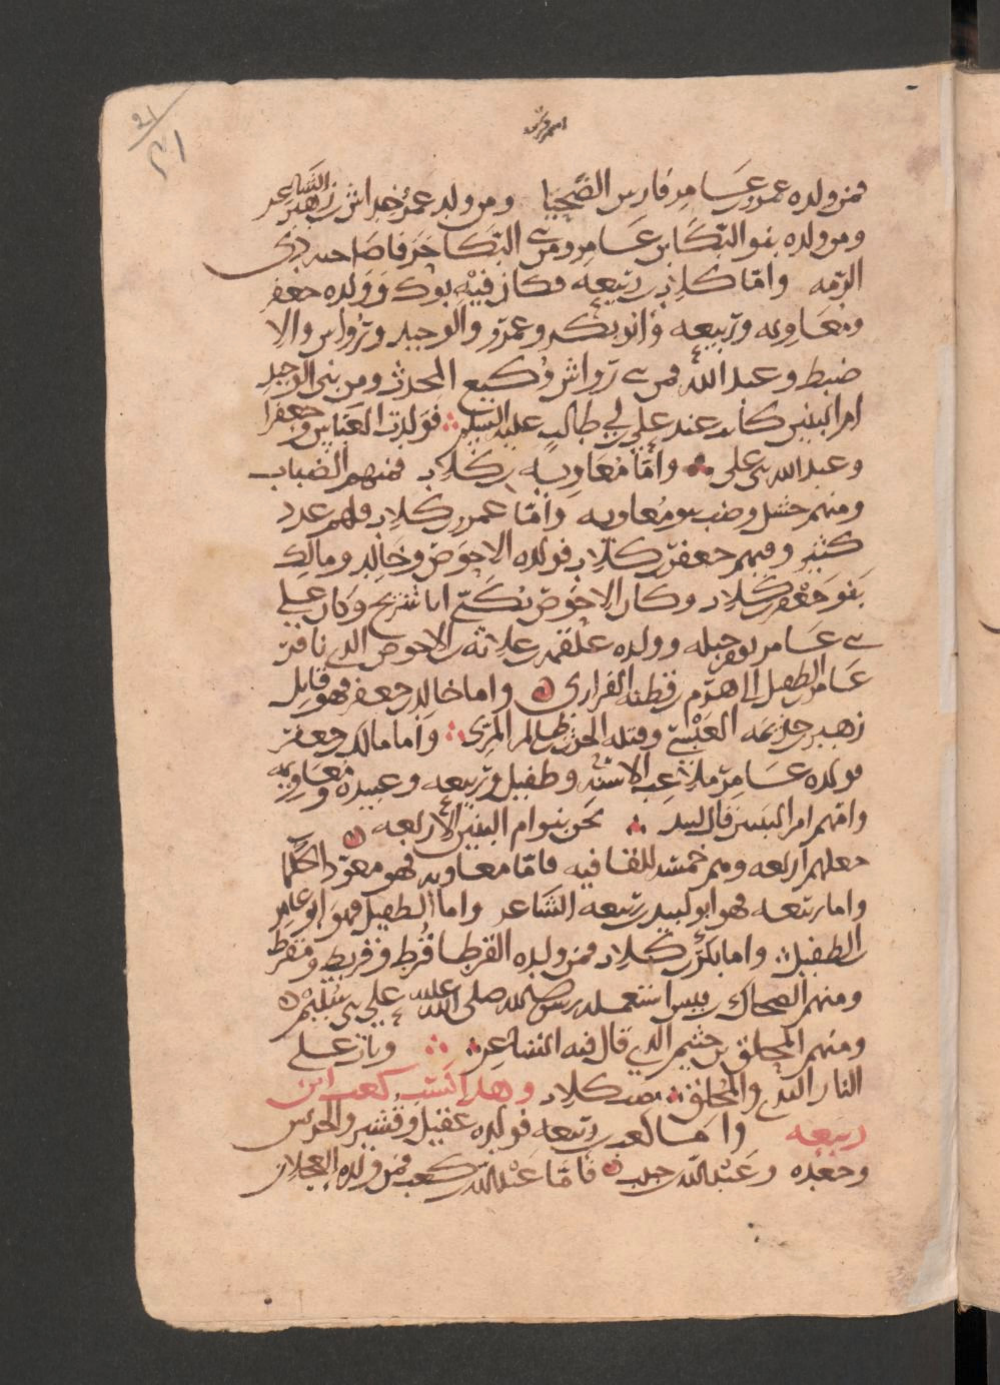 21
٢١
فمن ولده عمرو بن عامر فارس الضحيا ومن ولد عمرو خداش بن زهير الشاعر
ومن ولده بنو البكا بن عامر ومن بني البكا خرقا صاحبه ذي
الرمه واما كلاب بن ربيعه فكان فيه نوك وولده جعفر
ومعاويه وربيعه وابو بكر وعمرو والوحيد ورواس والا
ضبط وعبد الله فمن بني رواس وكيع المحدث ومن بني الوحيد
ام البنين كانت عند علي بن ابي طالب عليه السلم فولدت العباس وجعفرا
وعبد الله بني علي واما معاويه بن كلاب فمنهم الضباب
ومنهم حسل وضب بنو معاويه واما عمرو بن كلاب فلهم عدد
كثير ومنهم جعفر بن كلاب فولده الاحوص وخالد ومالك
بنو جعفر بن كلاب وكان الاحوص يكنى ابا شريح وكان علي
بني عامر يوم جبله وولده علقمه بن علاثه بن الاحوص الذي نافر
عامر بن الطفيل الى هرم بن قطنه الفزاري واما خالد بن جعفر فهو قاتل
زهير بن جذيمه العبسي وقتله الحرث بن ظالم المري واما مالك بن جعفر
فولده عامر ملاعب الاسنه وطفيل وربيعه وعبيده ومعاويه
وامهم ام البنين قال لبيد نحن بنو ام البنين الاربعه
جعلهم اربعه وهم خمسه للقافيه فاما معاويه فهو معود الحكما
واما ربيعه فهو ابو لبيد بن ربيعه الشاعر واما الطفيل فهو ابو عامر
بن الطفيل واما بكر بن كلاب فمن ولده القرطا قرط وقريط ومقرط
ومنهم الضحاك بن قيس استعمله رسول الله صلى الله عليه علي بني سليم
ومنهم المحلق بن حثيم الذي قال فيه الشاعر وبات على
النار الندى والمحلق كلاب وهذا نسب كعب ابن
ربيعه واما كعب بن ربيعه فولده عقيل وقشير والحرس
وجعده وعبد الله حبيب فاما عبد الله بن كعب فمن ولده العجلان